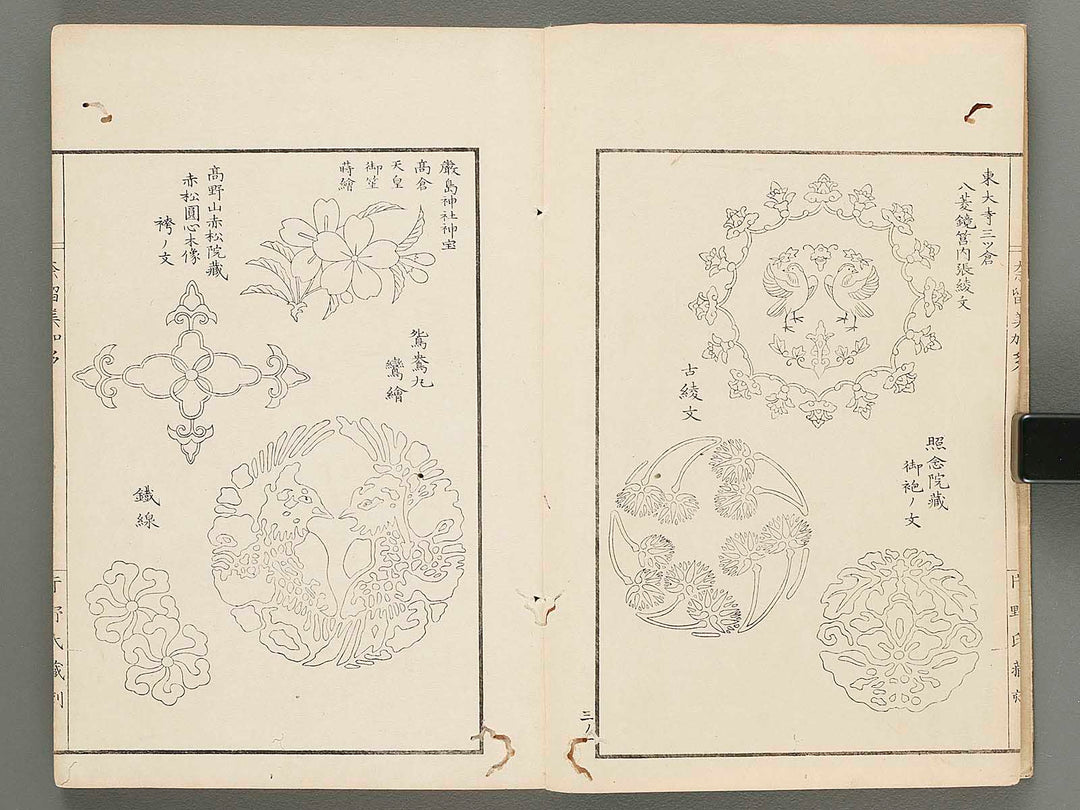 東大寺三ッ倉
八菱鏡筥内張綾文
古綾文
照念院藏
御袍ノ文
嚴島神社神宝
髙倉
天皇
御笙
蒔繪
髙野山赤松院藏
赤松圓心木像
袴ノ文
鴛鴦丸
鸞繪
鐵線